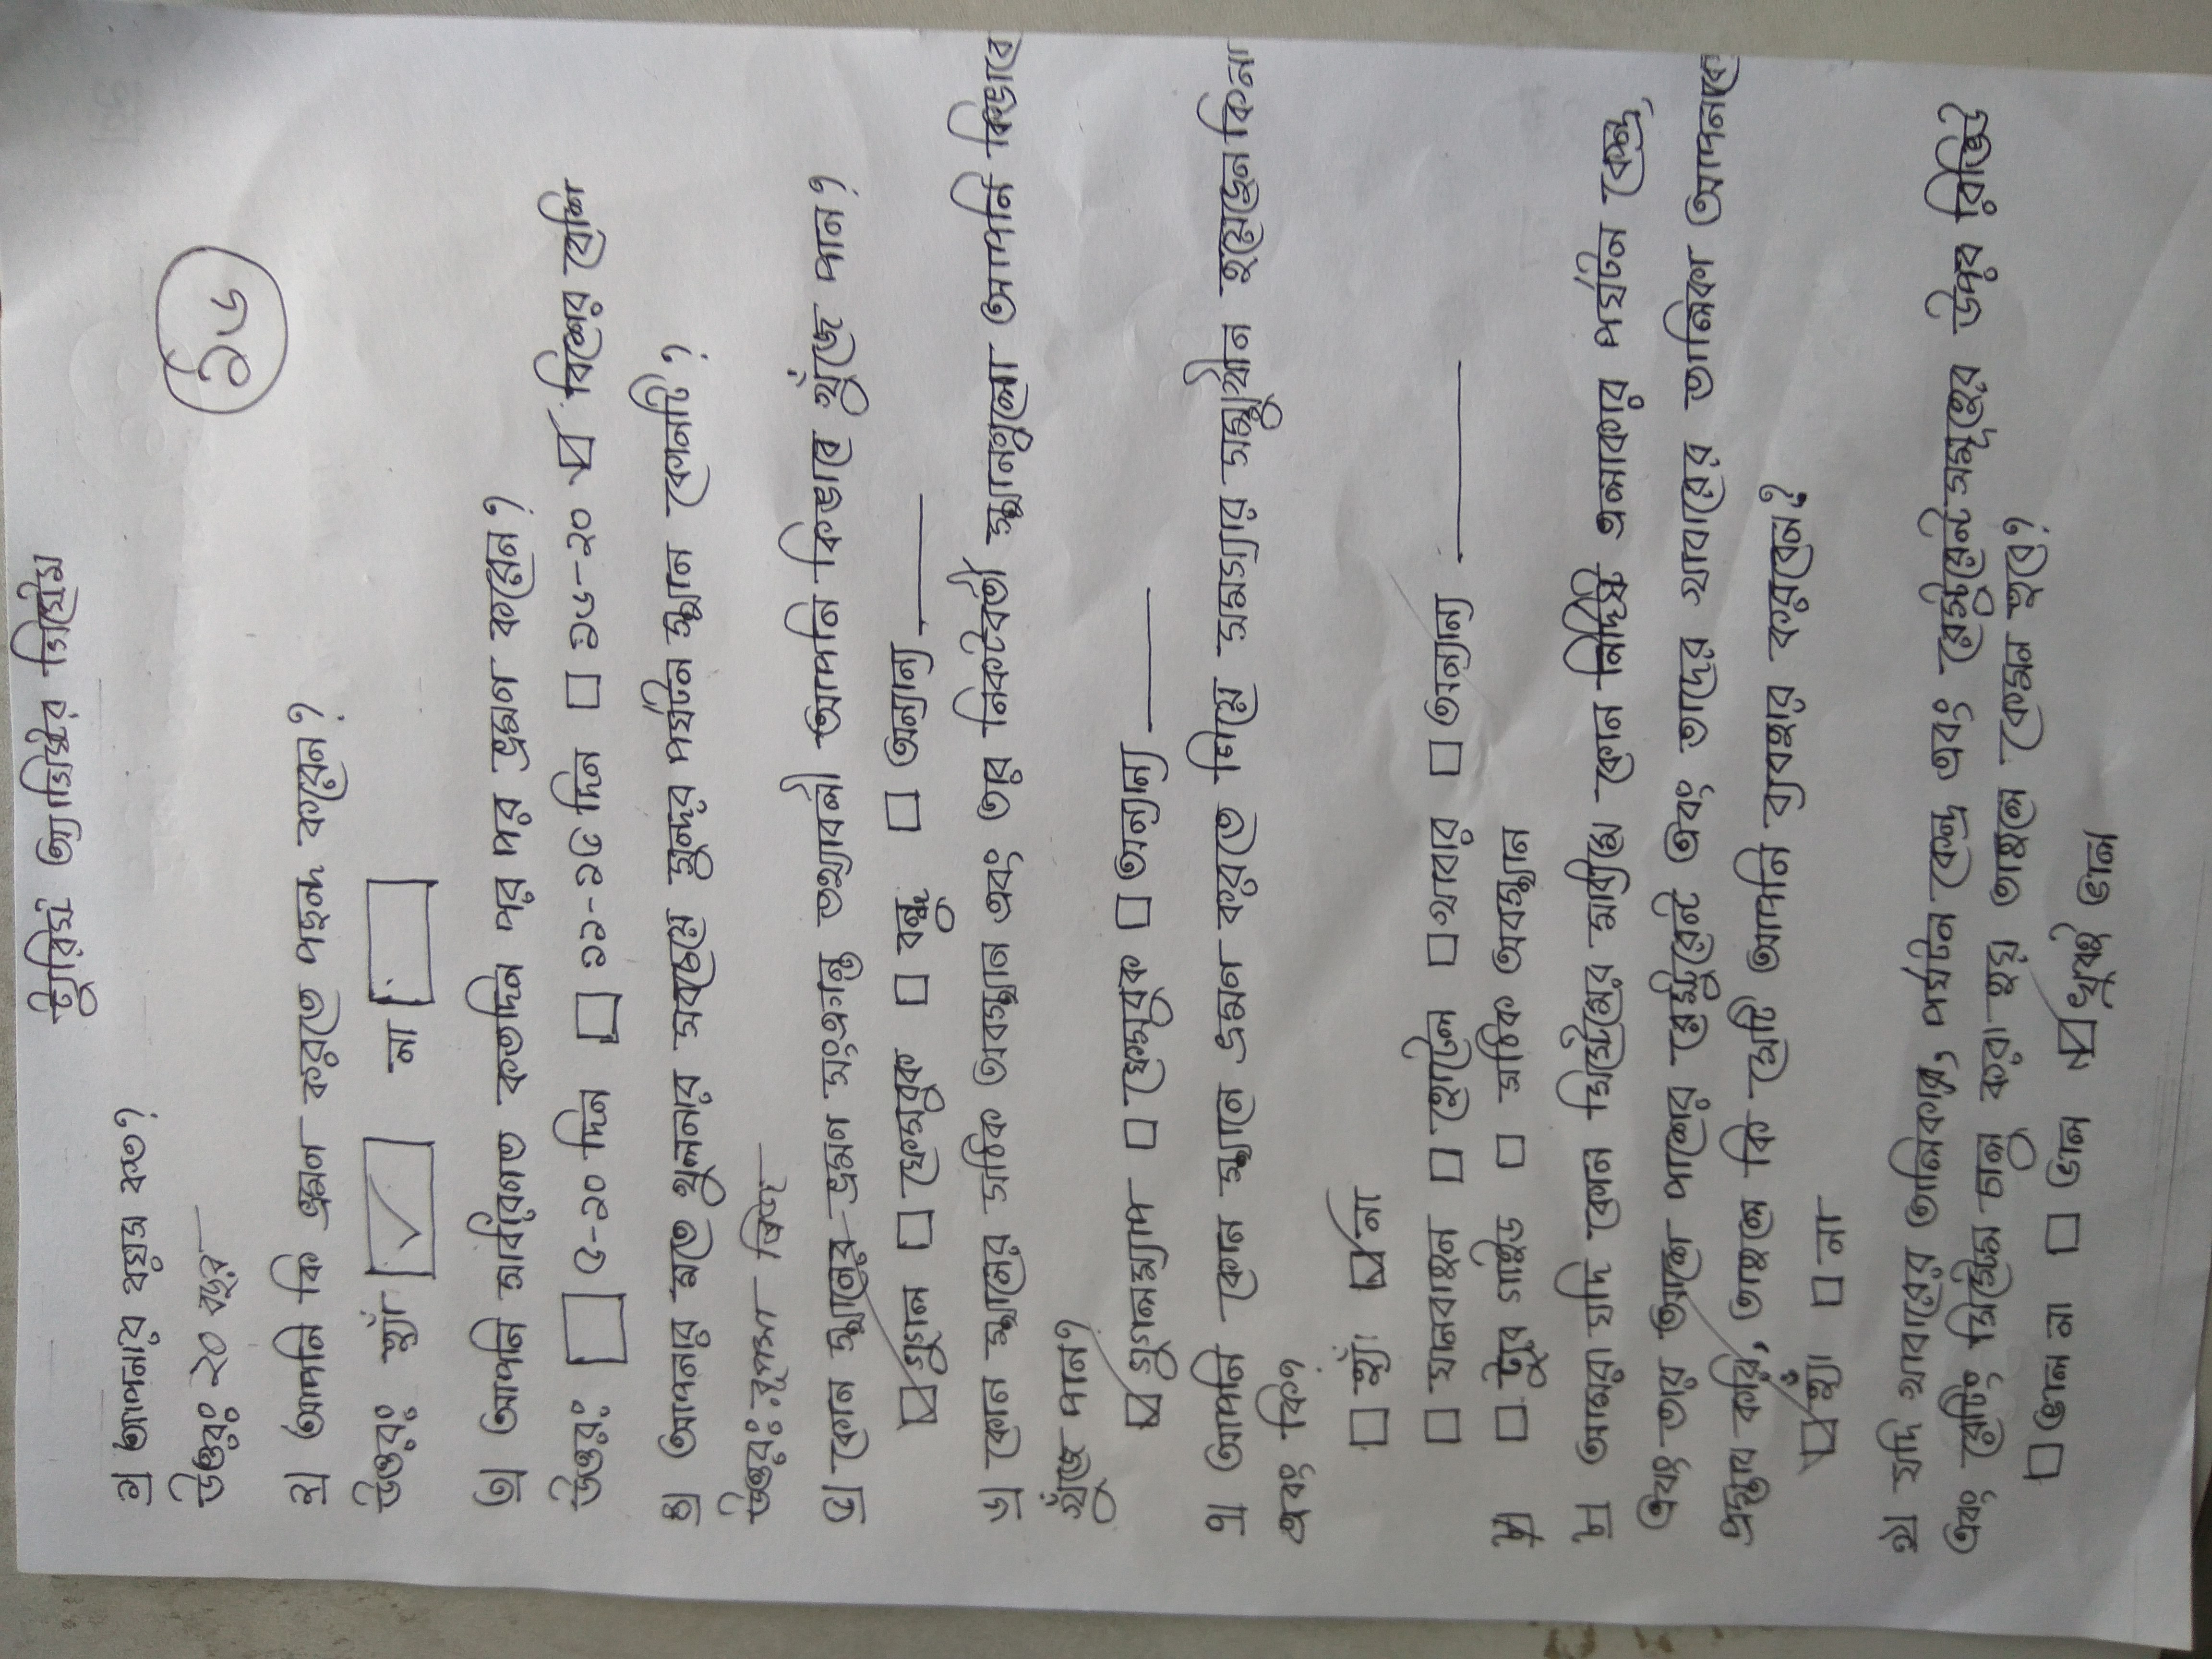 ট্যুরিস্ট অ্যাসিস্টর সিস্টেম
১৬
১| আপনার বয়স কত?
উত্তরঃ ২০ বছর
২| আপনি কি ভ্রমন করতে পছন্দ করেন?
উত্তরঃ হ্যাঁ ☑ না ☐
৩| আপনি সর্বাবিরনত কতদিন পর পর ভ্রমণ করেন?
উত্তরঃ ☐ ৫-১০ দিন ☐ ১১-১৫ দিন ☐ ১৬-২০ ☑ বিশের বেশি
৪| আপনার মতে খুলনার সবচেয়ে সুন্দর পর্যটন স্থান কোনটি?
উত্তরঃ রূপসা ব্রিজ
৫| কোন স্থানের ভ্রমন সংক্রান্ত তথ্যাবলী আপনি কিভাবে খুঁজে পান?
☑ গুগল ☐ ফেসবুক ☐ বন্ধু ☐ অন্যান্য ______
৬| কোন স্থানের সঠিক অবস্থান এবং তার নিকটবর্তী স্থানগুলো আপনি কিভাবে
খুঁজে পান?
☑ গুগলম্যাপ ☐ ফেসবুক ☐ অন্যান্য ______
৭| আপনি কোন স্থানে ভ্রমন করতে গিয়ে সমস্যার সম্মুখীন হয়েছেন কিনা
এবং কি?
☐ হ্যাঁ ☑ না
☐ যানবাহন ☐ হোটেল ☐ খাবার ☐ অন্যান্য ______
☐ ট্যুর গাইড ☐ সঠিক অবস্থান
৮| আমরা যদি কোন সিস্টেমের মাধ্যমে কোন নির্দিষ্ট এলাকার পর্যটন কেন্দ্র,
এবং তার আশে পাশের রেস্টুরেন্ট এবং তাদের খাবারের তালিকা আপনাকে
প্রস্তুাব করি, তাহলে কি সেটি আপনি ব্যবহার করবেন?
☑ হ্যাঁ ☐ না
৯| যদি খাবারের তালিকায়, পর্যটন কেন্দ্র এবং রেস্টুরেন্ট সমূহের উপর রিভিউ
এবং রেটিং সিস্টেম চালু করা হয় তাহলে কেমন হবে?
☐ ভাল না ☐ ভাল ☑ খুবই ভাল